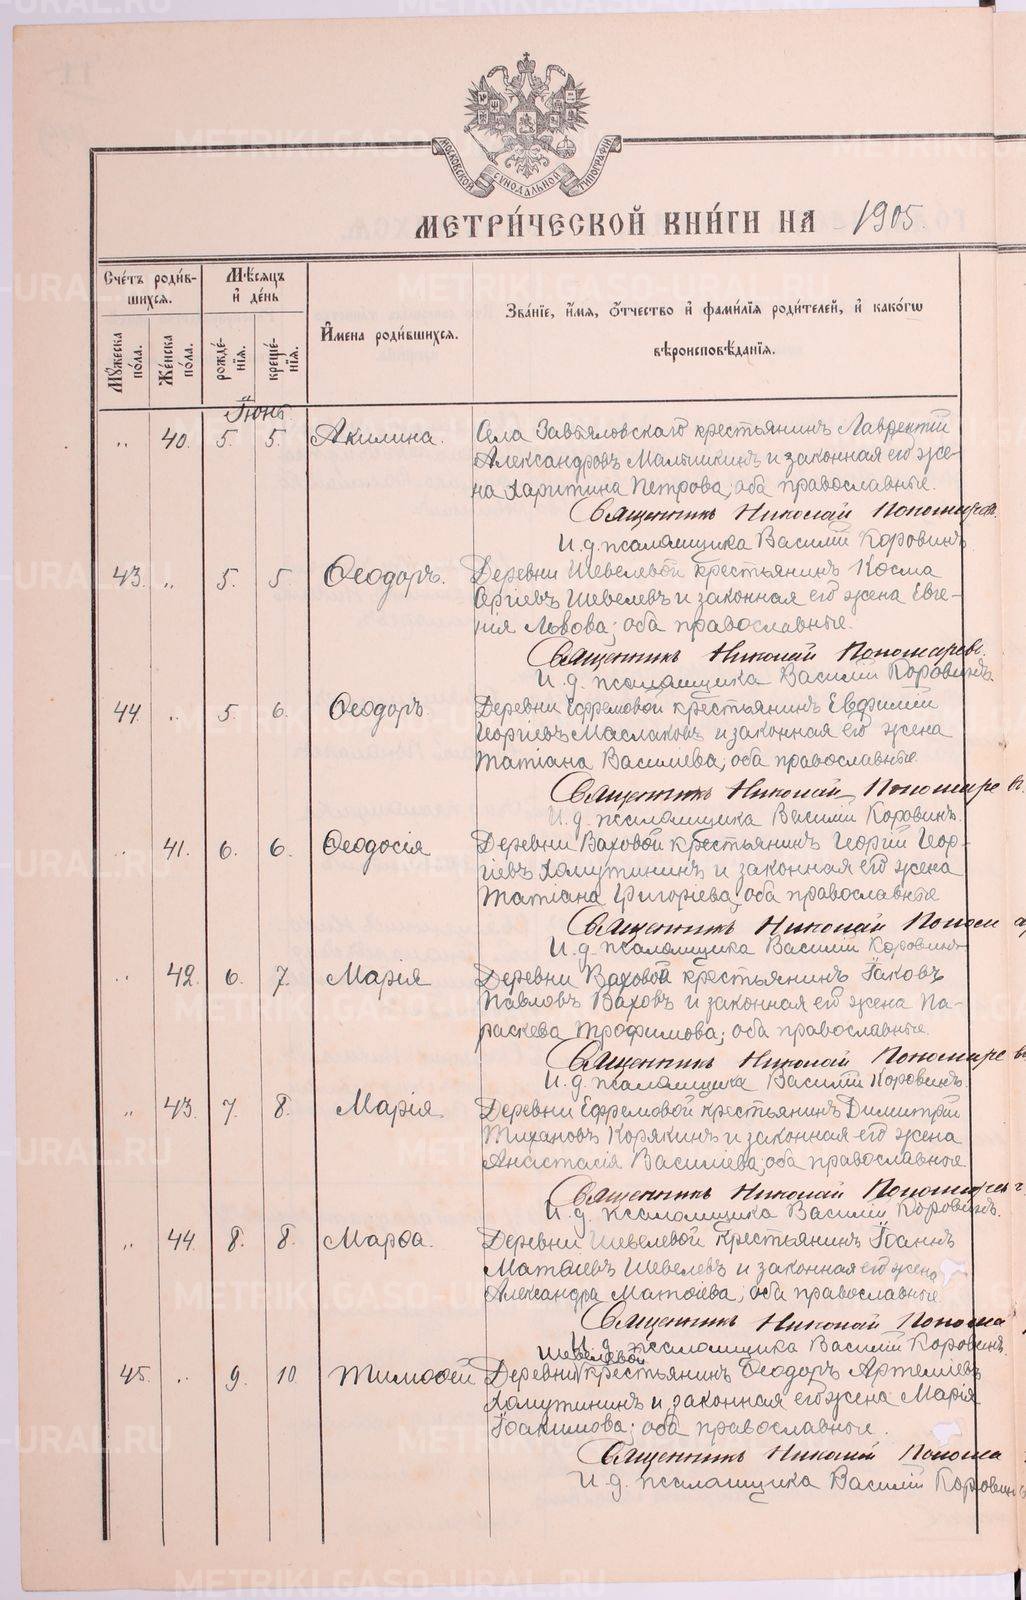 МОСКОВСКОЙ СѴНОДАЛЬНОЙ ТИПОГРАФІИ
МЕТРИ́ЧЕСКОЙ КНИ́ГИ НА 1905.
Сче́тъ роди́в-
шихся.
Мѣ́сяцъ
и҆ де́нь
Мꙋ́жеска по́ла.
Же́нска по́ла.
рожде́-
нїя.
креще́-
нїя.
И҆мена роди́вшихся.
Зва́нїе, и҆́мя, ѻ҆́тчество и҆ фами́лїя роди́телей, и҆ како́гѡ
вѣроисповѣ́данїя.
Іюнь.
„ 40. 5. 5. Акилина. Села Завьяловскаго крестьянинъ Лаврентій
Александровъ Малышкинъ и законная его же-
на Харитина Петрова; оба православные.
Священникъ Николай Пономарев.
И. д. псаломщика Василій Коровинъ
43. „ 5. 5 Ѳеодоръ. Деревни Шевелевой крестьянинъ Косма
Сергіевъ Шевелевъ и законная его жена Евге-
нія Львова; оба православные.
Священникъ Николай Пономаревъ.
И. д. псаломщика Василій Коровинъ
44. „ 5. 6. Ѳеодоръ. Деревни Ефремовой крестьянинъ Евфимій
Георгіевъ Маслаковъ и законная его жена
Татіана Василіева; оба православные
Священникъ Николай Пономарев
И. д. псаломщика Василій Коровинъ.
„ 41. 6. 6. Ѳеодосія Деревни Ваховой крестьянинъ Георгій Геор-
гіевъ Хомутининъ и законная его жена
Татіана Григоріева; оба православные
Священникъ Николай Поном ар
И. д. псаломщика Василій Коровинъ
„ 42. 6. 7. Марія Деревни Ваховой крестьянинъ Іаковъ
Павловъ Ваховъ и законная его жена Па-
раскева Трофимова; оба православные.
Священникъ Николай Пономарев
И. д. псаломщика Василій Коровинъ.
„ 43. 7. 8. Марія Деревни Ефремовой крестьянинъ Димитрій
Тихановъ Корякинъ и законная его жена
Анастасія Василіева; оба православные
Священникъ Николай Пономарев
И. д. псаломщика Василій Коровинъ.
„ 44. 8. 8. Марѳа. Деревни Шевелевой крестьянинъ Іоаннъ
Матѳіевъ Шевелевъ и законная его жена
Александра Матѳіева; оба православные
Священникъ Николай Понома
И. д. псаломщика Василій Коровинъ.
Шевелевой
45. „ 9. 10. Тимоѳей Деревни крестьянинъ Ѳеодоръ Артеміевъ
Хомутининъ и законная его жена Марія
Іоакимова; оба православные.
Священникъ Николай Понома
И. д. псаломщика Василій Коровинъ
METRIKI.GASO-URAL.RU